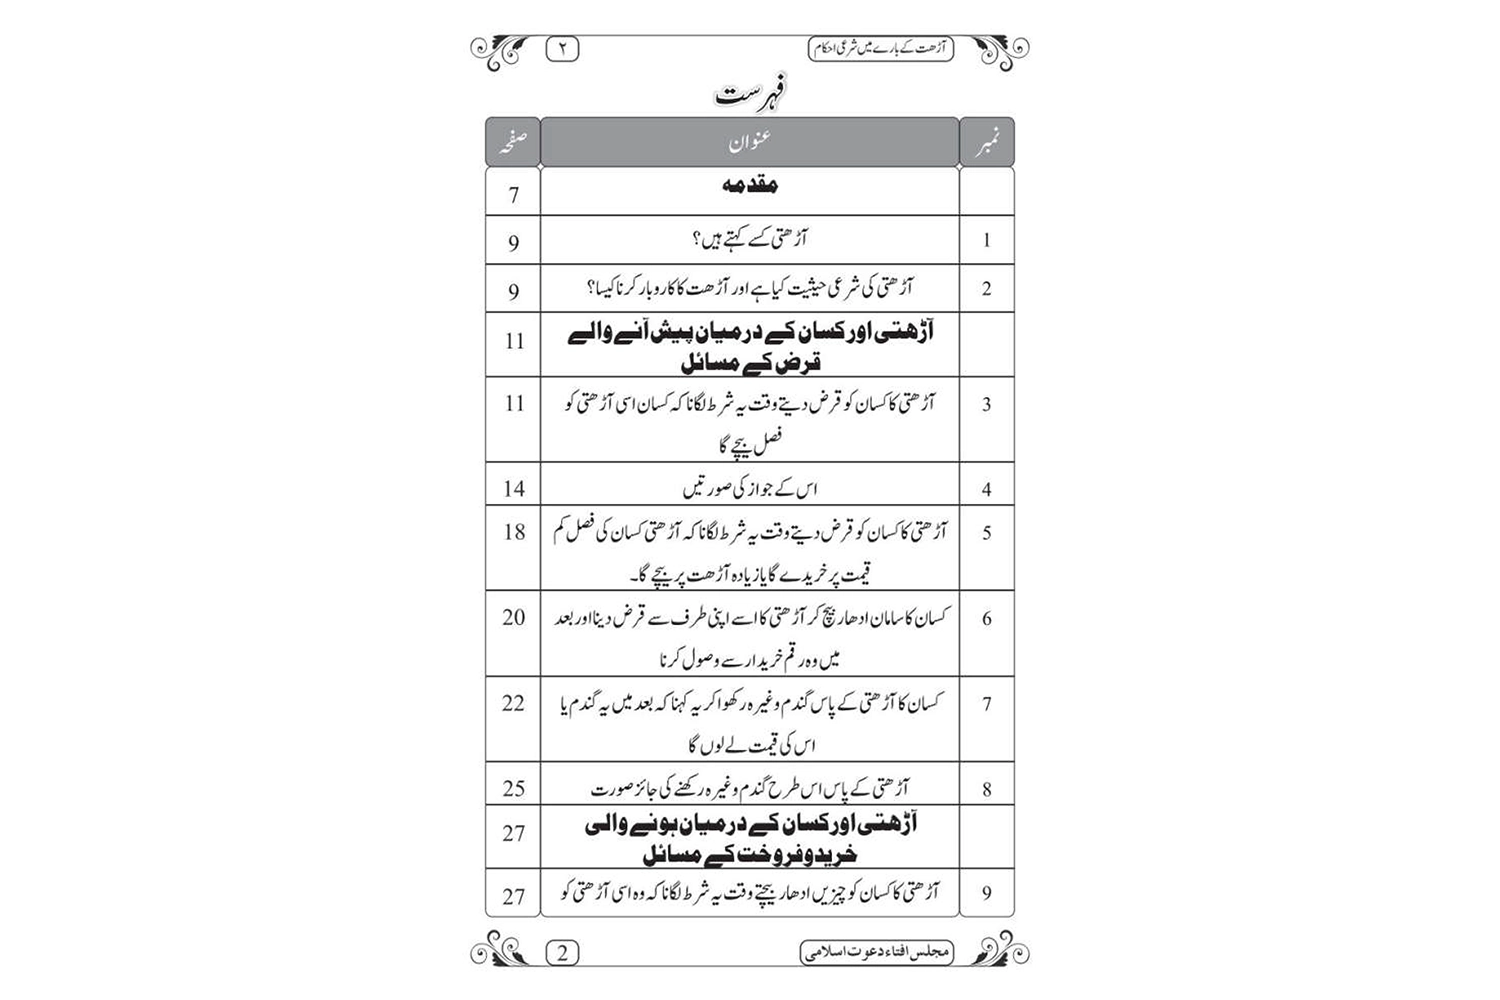 آڑھت کے بارے میں شرعی احکام ۲
فہرست
نمبر عنوان صفحہ
مقدمہ 7
1 آڑھتی کسے کہتے ہیں؟ 9
2 آڑھتی کی شرعی حیثیت کیا ہے اور آڑھت کا کاروبار کرنا کیسا؟ 9
آڑھتی اور کسان کے درمیان پیش آنے والے 11
قرض کے مسائل
3 آڑھتی کا کسان کو قرض دیتے وقت یہ شرط لگانا کہ کسان اسی آڑھتی کو 11
فصل بیچے گا
4 اس کے جواز کی صورتیں 14
5 آڑھتی کا کسان کو قرض دیتے وقت یہ شرط لگانا کہ آڑھتی کسان کی فصل کم 18
قیمت پر خریدے گا یا زیادہ آڑھت پر بیچے گا۔
6 کسان کا سامان ادھار بیچ کر آڑھتی کا اسے اپنی طرف سے قرض دینا اور بعد 20
میں وہ رقم خریدار سے وصول کرنا
7 کسان کا آڑھتی کے پاس گندم وغیرہ رکھوا کر یہ کہنا کہ بعد میں یہ گندم یا 22
اس کی قیمت لے لوں گا
8 آڑھتی کے پاس اس طرح گندم وغیرہ رکھنے کی جائز صورت 25
آڑھتی اور کسان کے درمیان ہونے والی 27
خرید و فروخت کے مسائل
9 آڑھتی کا کسان کو چیزیں ادھار بیچتے وقت یہ شرط لگانا کہ وہ اسی آڑھتی کو 27
مجلس افتاء دعوت اسلامی 2